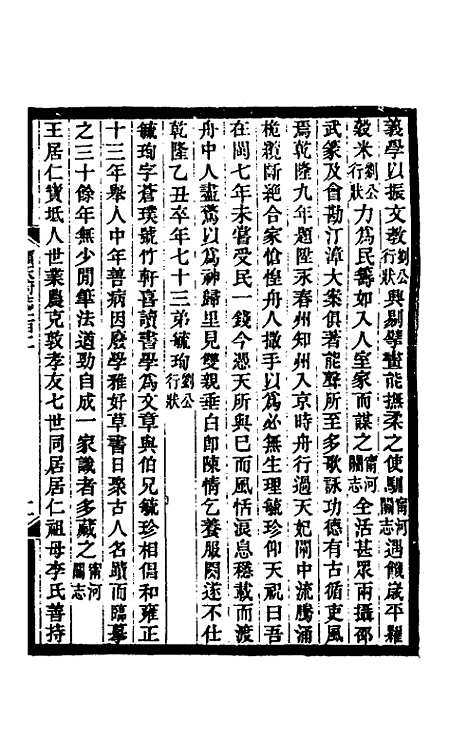 義學以振文教劉公行狀興剔擘畫能撫柔之使馴甯河關志遇饑歲平糶
穀米劉公行狀力爲民籌如入人室家而謀之甯河關志全活甚眾兩攝邵
武篆及會勘汀漳大案俱著能聲所至多歌詠功德有古循吏風
焉乾隆九年題陞永春州知州入京時舟行過天妃閘中流騰涌
桅纜斷絕合家愴惶舟人撒手以爲必無生理毓珍仰天祝曰吾
在閩七年未嘗受民一錢今憑天所與已而風恬浪息穩載而渡
舟中人盡驚以爲神歸里見雙親垂白卽陳情乞養服闋遂不仕
乾隆乙丑卒年七十三弟毓珣劉公行狀
毓珣字蒼璞號竹軒喜讀書學爲文章與伯兄毓珍相倡和雍正
十三年舉人中年善病因廢學雅好草書日聚古人名蹟而臨摹
之三十餘年無少閒筆法遒勁自成一家識者多藏之甯河關志
王居仁寶坻人世業農克敦孝友七世同居居仁祖母李氏善持